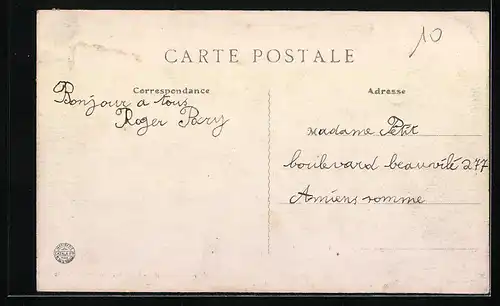 10
CARTE POSTALE
Correspondance
Adresse
Bonjour a tous
Roger Pary
Madame Petit
boulevard beauvilé 277
Amiens somme